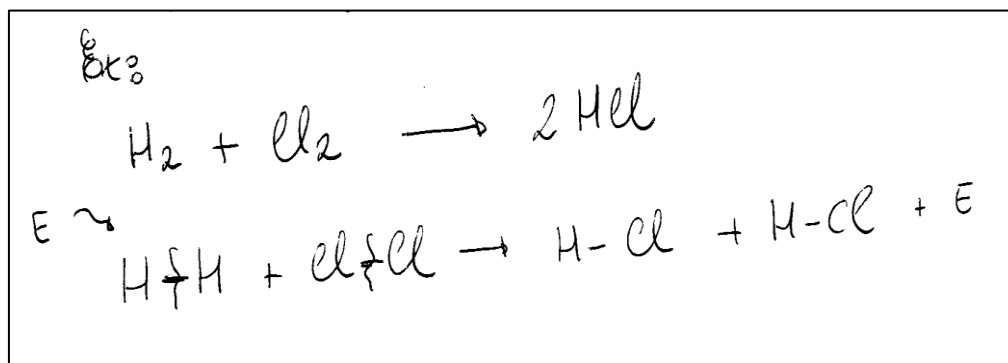 Ex:
H₂ + Cl₂ → 2 HCl
E
H-H + Cl-Cl → H-Cl + H-Cl + E